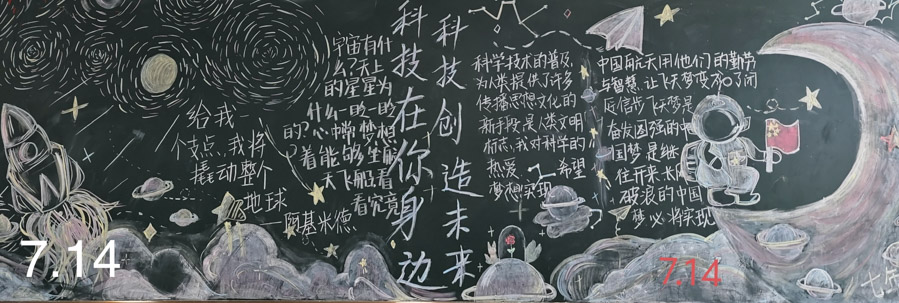 科技在你身边
科技创造未来
给我一
个支点,我将
撬动整个
地球
—阿基米德
宇宙有什
么?天上
的星星为
什么一闪一闪
的?心中常梦想
着能够坐船
天飞船看
看究竟
科学技术的普及,
为人类提供了许多
传播思想文化的
新手段,是人类文明
标志,我对科学的
热爱 希望
梦想实现
中国航天用他们的勤劳
与智慧,让飞天梦变
信步飞天梦是
奋发图强的中
国梦是继
往开来长
破浪的中国
梦必将实现
7.14
7.14
七年